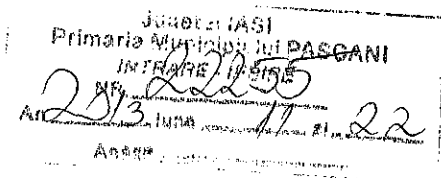 Județul IAȘI
Primaria Municipiului PAȘCANI
INTRARE / IEȘIRE
NR. 22255
An 2013 luna 11 zi 22